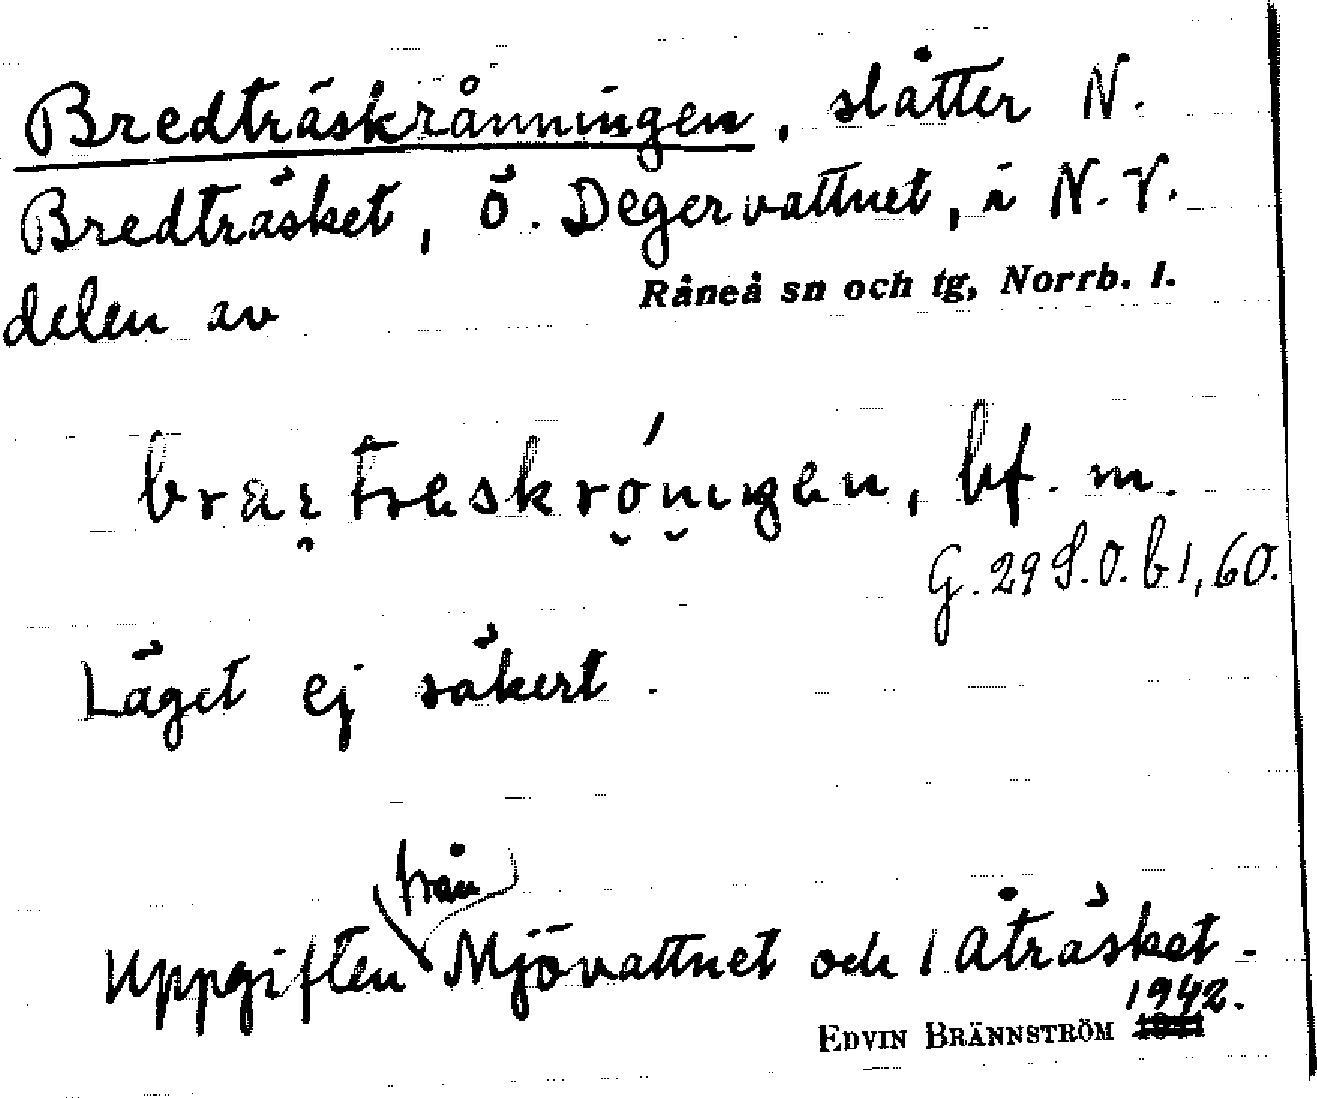 Bredträskrånningen, slåtter N.
Bredträsket, Ö. Degervattnet, i N.V.
delen av Råneå sn och tg, Norrb. l.
bf. m.
G. 29 S.O. b 1, 60.
Läget ej säkert.
från
Uppgiften Mjövattnet och / Åträsket.
1942.
EDVIN BRÄNNSTRÖM 1941